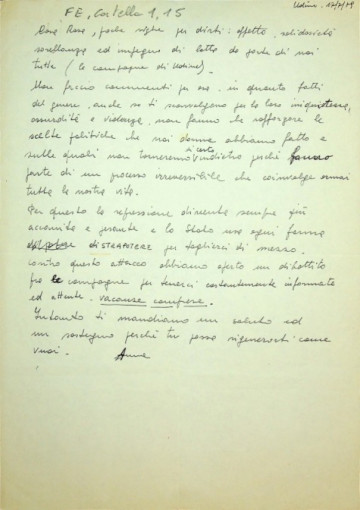 FE, Cartella 1, 15
Udine, 17/7/79
Cara Rosa, poche righe per dirti: affetto, solidarietà
sorellanza ed impegno di lotta da parte di noi
tutte (le compagne di Udine).
Non faccio commenti per ora, in quanto fatti
del genere, anche se ti sconvolgono per la loro
assurdità e violenza, non fanno che rafforzare le
scelte politiche che noi donne abbiamo fatto e
sulle quali non torneremo di certo indietro perché fanno
parte di un processo irreversibile che coinvolge ormai
tutta la nostra vita.
Per questo la repressione diventa sempre più
accanita e pesante e lo Stato usa ogni forma
per toglierci di mezzo.
Contro questo attacco abbiamo aperto un dibattito
fra le compagne per tenerci costantemente informate
ed attente.
Intanto ti mandiamo un saluto ed
un sostegno perché tu possa rigenerarti come
vuoi.